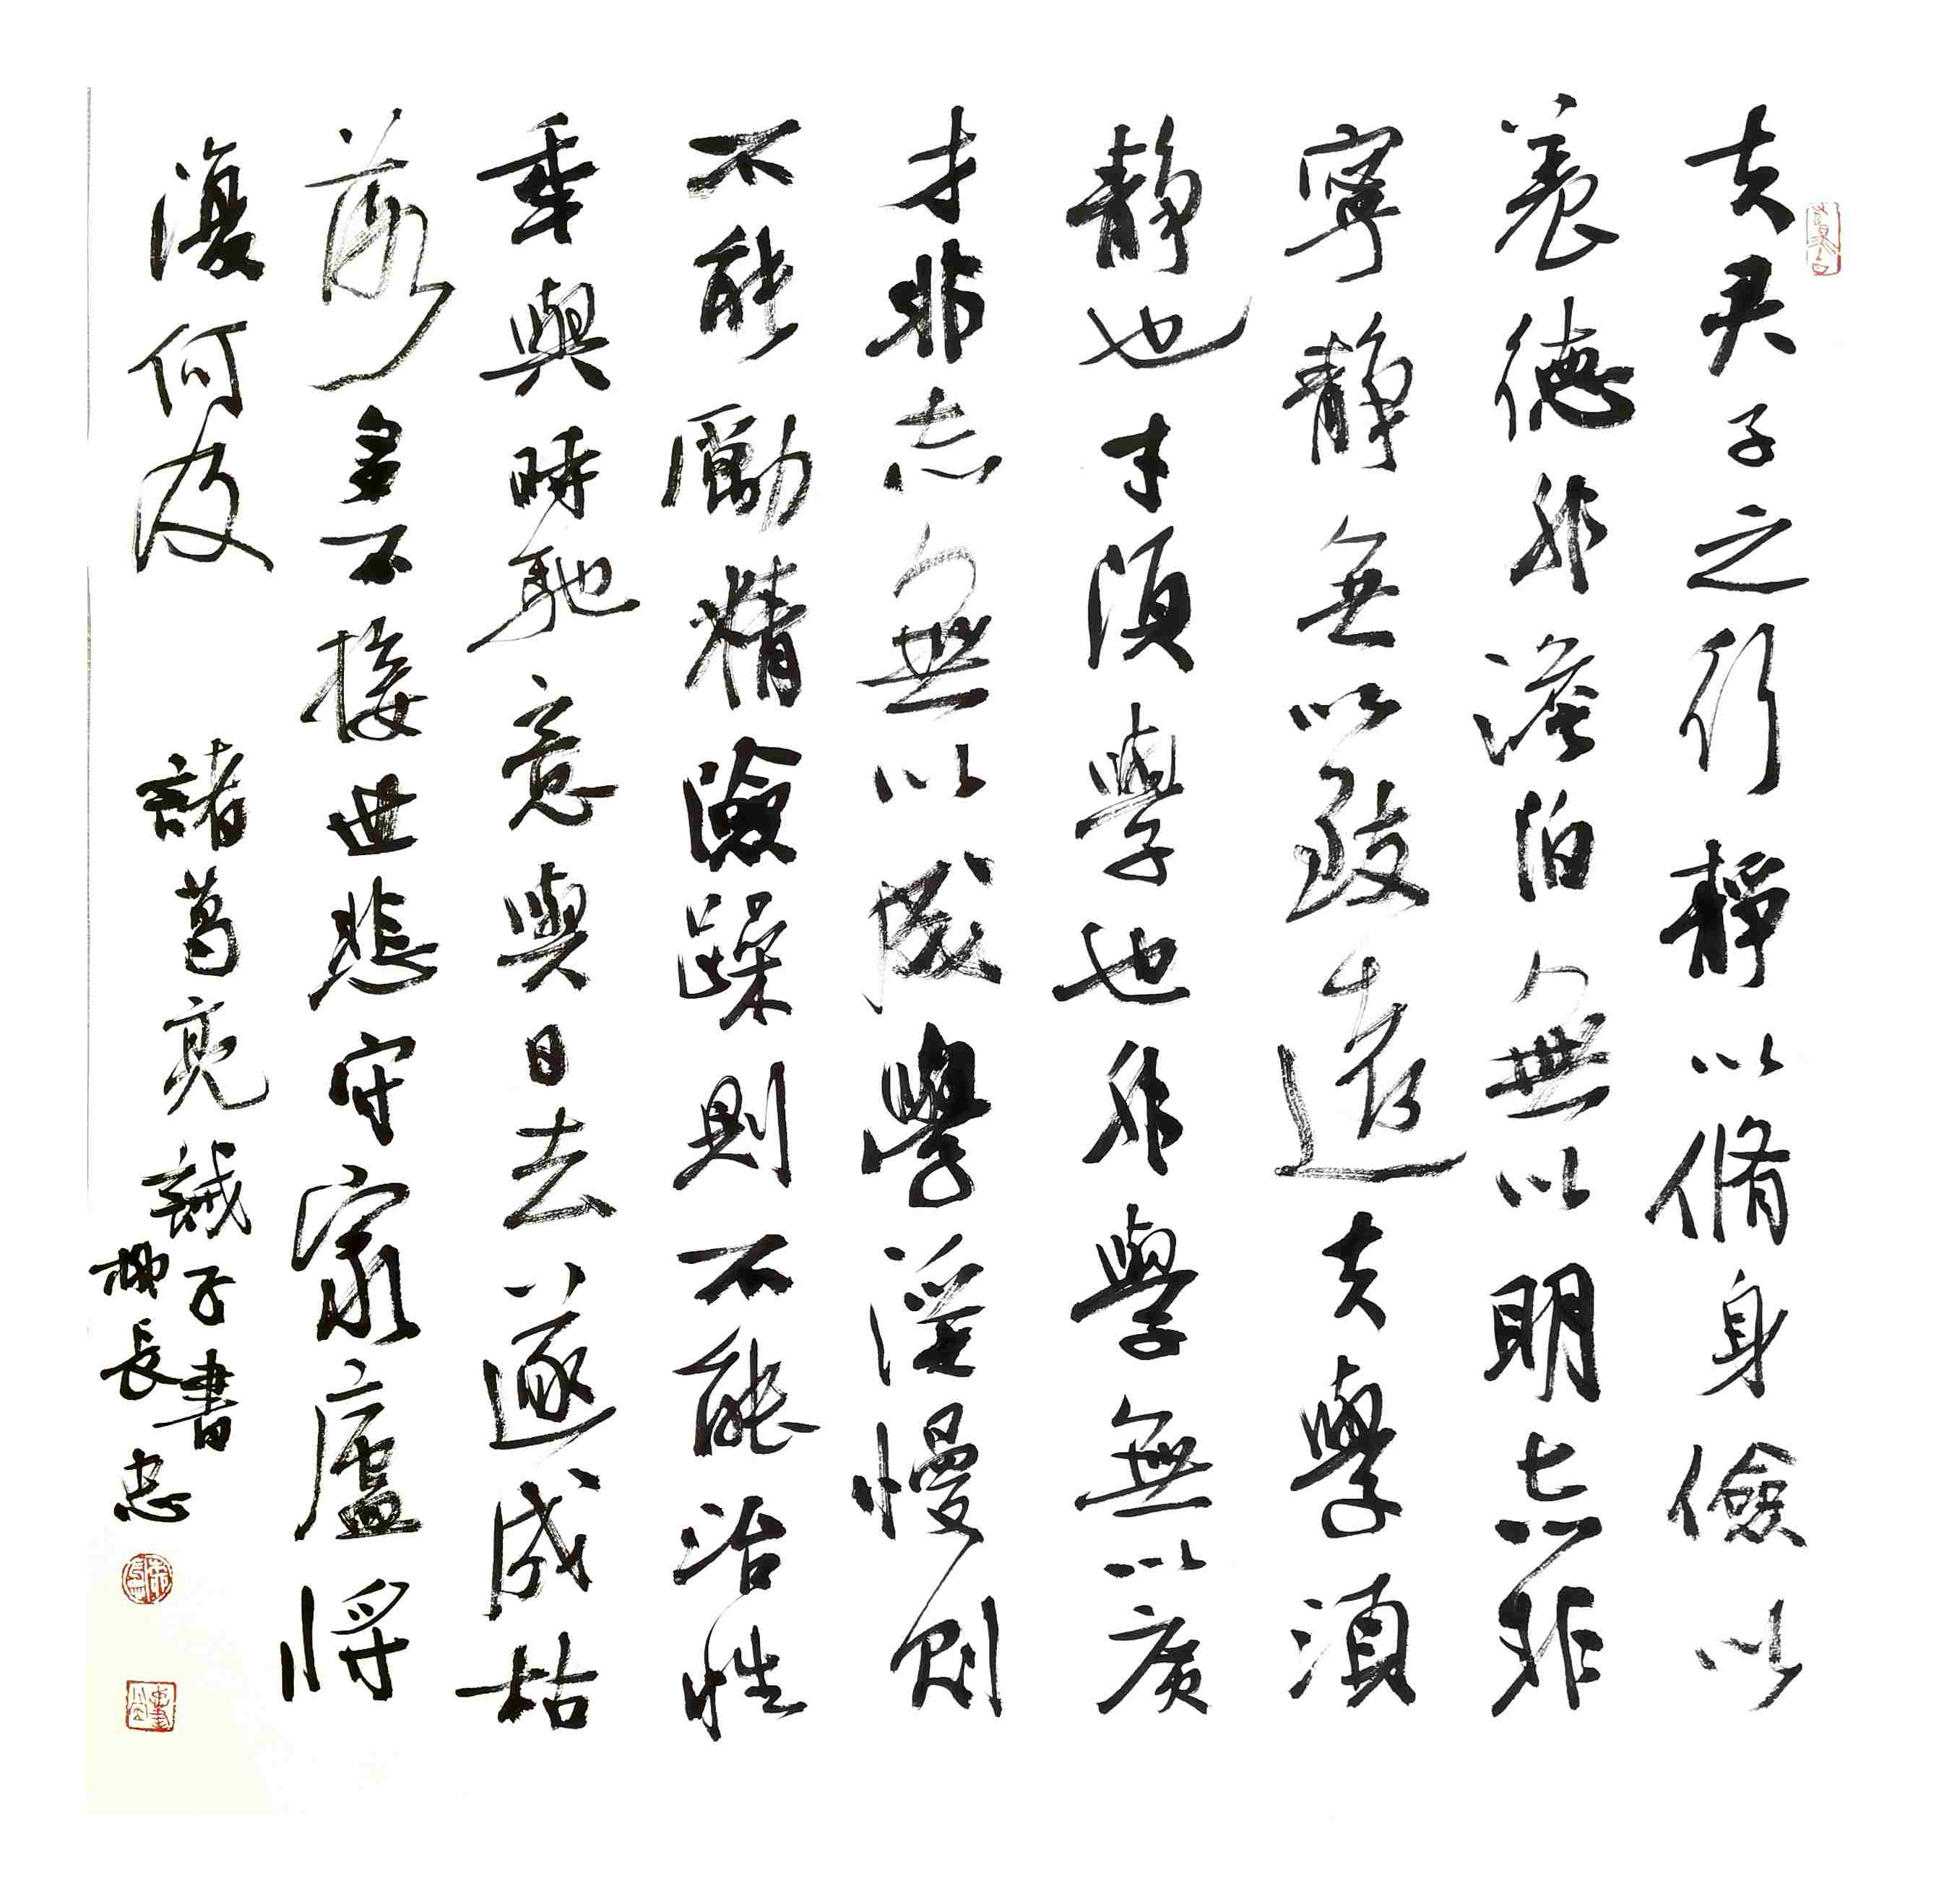 夫君子之行靜以脩身儉以
養德非澹泊無以明志非
寧靜無以致遠夫學須
靜也才須學也非學無以廣
才非志無以成學淫慢則
不能勵精險躁則不能冶性
年與時馳意與日去遂成枯
落多不接世悲守窮廬將
復何及 諸葛亮誡子書
柳長忠